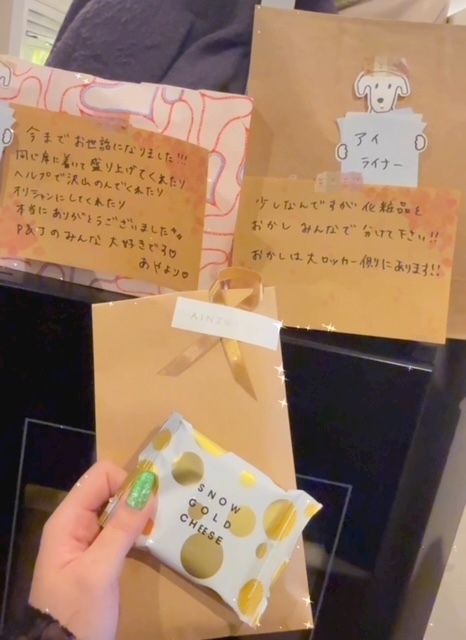 今までお世話になりました!!!
同じ席に着いて盛り上げてくれたり
ヘルプで沢山のんでくれたり
オリシャンにしてくれたり
本当にありがとうございました
P&Jのみんな 大好きです♡
あやより♡
アイ
ライナー
少しなんですが 化粧品と
おかし みんなで 分けて下さい!!
おかしは大ロッカー側にあります!!
SNOW
GOLD
CHEESE